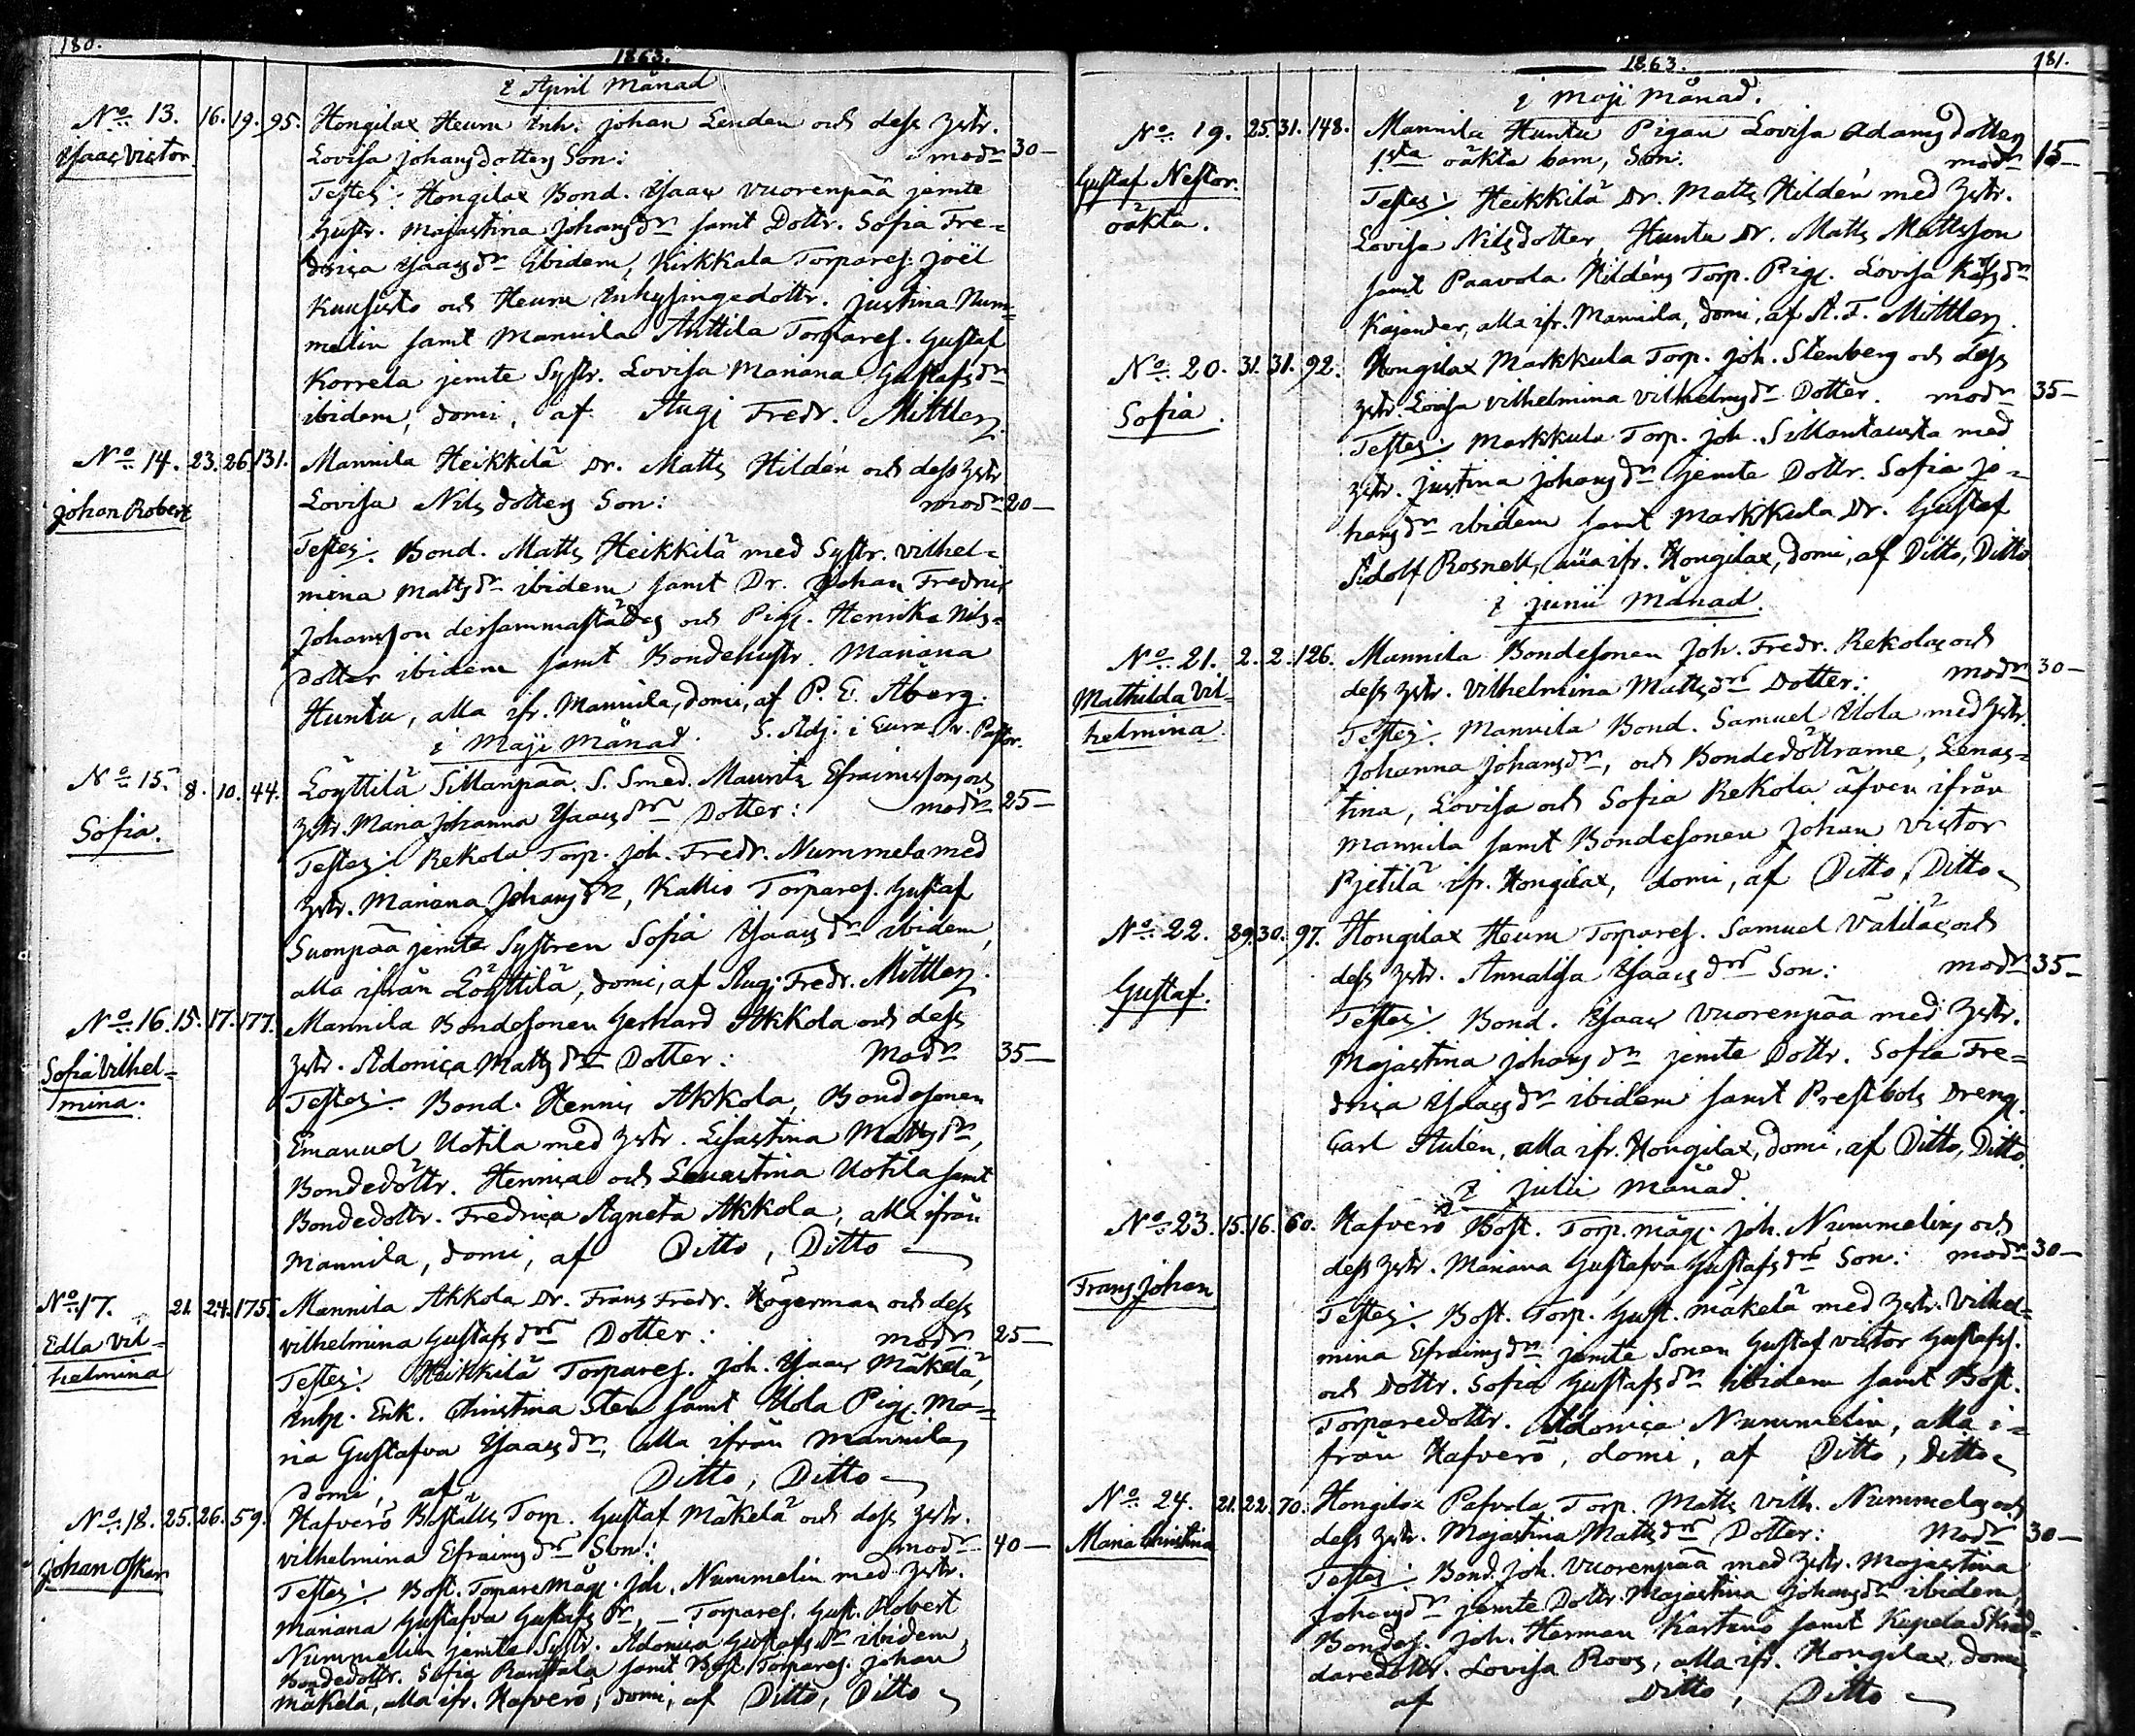 180.
1863.
i April Månad
No 13. 16. 19. 95. Hongilax Heurn Inh. Johan Lenden och dess hstr.
Isaac Victor. Lovisa Johansdotters Son: modrn 30—
Testes: Hongilax Bond. Isaac Vuorenpää jemte
hustr. Majastina Johansdr samt Dottr. Sofia Fre=
drica Isaacsdr ibidem, Kirkkala Torpares. Joël
Kuusisto och Heurn Inhysingedottr. Justina Num=
melin samt Mannila Anttila Torpares. Gustaf
Korrela jemte Systr. Lovisa Mariana Gustafsdr
ibidem, domi, af Aug. Fredr. Mittler.
No 14. 23. 26. 131. Mannila Heikkilä Dr. Matts Hildén och dess hstr
Johan Robert Lovisa Nilsdotters Son: modrn 20—
Testes: Bond. Matts Heikkilä med Systr. Vilhel=
mina Mattsdr ibidem samt Dr. Johan Fredric
Johansson dersammastädes och Pig. Henrika Nils=
dotter ibidem samt Bondehustr. Mariana
Huntu, alla ifr. Mannila, domi, af P. E. Åberg.
i Maji Månad. S. Adj. i Eura, v. Pastor.
No 15. 8. 10. 44. Löyttilä Sillanpää S. Smed. Maurits Efraimssons och
Sofia. hstr. Maria Johanna Isaacsdrs Dotter: modrn 25—
Testes: Rekola Torp. Joh. Fredr. Nummela med
hstr. Mariana Johansdr, Kallio Torpares. Gustaf
Suonpää jemte Systren Sofia Isaacsdr ibidem,
alla ifrån Löyttilä, domi, af Aug. Fredr. Mittler.
No 16. 15. 17. 177. Mannila Bondesonen Gerhard Akkola och dess
Sofia Vilhel= hstr. Adonica Mattsdrs Dotter: Modrn 35—
mina. Testes: Bond. Henric Akkola, Bondesonen
Emanuel Uotila med hstr. Lisastina Mattsdr,
Bondedöttr. Henrica och Lenastina Uotila samt
Bondedottr. Fredrica Agneta Akkola, alla ifrån
Mannila, domi, af Ditto, Ditto
No 17. 21. 24. 175. Mannila Akkola Dr. Frans Fredr. Högerman och dess
Edla Vil= Vilhelmina Gustafsdrs Dotter: modrn 25—
helmina Testes: Heikkilä Torpares. Joh. Isaac Mäkelä,
Inhs. Enk. Christina Sten samt Ylola Pig. Ma=
ria Gustafva Isaacsdr, alla ifrån Mannila,
domi, af Ditto, Ditto
No 18. 25. 26. 59. Hafverö Boställs Torp. Gustaf Mäkelä och dess hstr.
Johan Oskar Vilhelmina Efraimsdrs Son: modrn 40—
Testes: Bost. Torpare Måg. Joh. Nummelin med hstr.
Mariana Gustafva Gustafsdr, — Torpares. Gust. Robert
Nummelin jemte Systr. Adonica Gustafsdr ibidem,
Bondedottr. Sofia Ranttala samt Bost. Torpares. Johan
Mäkelä, alla ifr. Hafverö, domi, af Ditto, Ditto
1863.
181.
i Maji Månad.
No 19. 25. 31. 148. Mannila Huntu Pigan Lovisa Adamsdotters
Gustaf Nestor. 1sta oäkta barn, Son: modrn 15—
oäkta. Testes: Heikkilä Dr. Matts Hildén med hstr.
Lovisa Nilsdotter, Huntu Dr. Matts Mattsson
samt Paavola Hildéns Torp. Pig. Lovisa
Kajander, alla ifr. Mannila, domi, af A. F. Mittler.
No 20. 31. 31. 92. Hongilax Markkula Torp. Joh. Stenberg och dess
Sofia. hstr. Lovisa Vilhelmina Vilhelmsdrs Dotter. modrn 35—
Testes: Markkula Torp. Joh. Sillantausta med
hstr. Justina Johansdr jemte Dottr. Sofia Jo=
hansdr ibidem samt Markkula Dr. Gustaf
Adolf Rosnell, alla ifr. Hongilax, domi, af Ditto, Ditto
i Junii Månad.
No 21. 2. 2. 126. Mannila Bondesonen Joh. Fredr. Rekolas och
Mathilda Vil= dess hstr. Vilhelmina Mattsdrs Dotter: modrn 30—
helmina. Testes: Mannila Bond. Samuel Ylola med hstr.
Johanna Johansdr, och Bondedöttrarne, Lenas=
tina, Lovisa och Sofia Rekola äfven ifrån
Mannila samt Bondesonen Johan Victor
Pjetilä ifr. Hongilax, domi, af Ditto, Ditto
No 22. 29. 30. 97. Hongilax Heurn Torpares. Samuel Väliläs och
Gustaf. dess hstr. Annalisa Isaacsdrs Son: modrn 35—
Testes: Bond. Isaac Vuorenpää med hstr.
Majastina Johansdr jemte Dottr. Sofia Fre=
drica Isaacsdr ibidem samt Prestbols Dreng.
Carl Aulén, alla ifr. Hongilax, domi, af Ditto, Ditto.
i Julii Månad.
No 23. 15. 16. 60. Hafverö Bost. Torp. måg. Joh. Nummelins och
Frans Johan dess hstr. Mariana Gustafva Gustafsdrs Son: modrn 30—
Testes: Bost. Torp. Gust. Mäkelä med hstr. Vilhel=
mina Efraimsdr jemte Sonen Gustaf Victor Gustafss.
och Dottr. Sofia Gustafsdr ibidem samt Bost.
Torparedottr. Adonica Nummelin, alla i=
från Hafverö, domi, af Ditto, Ditto
No 24. 21. 22. 70. Hongilax Pafvola Torp. Matts Vilh. Nummelas och
Maria Christina dess hstr. Majastina Mattsdrs Dotter: Modrn 30—
Testes: Bond. Joh. Vuorenpää med hstr. Majastina
Johansdr jemte Dottr. Majastina Johansdr ibidem,
Bondes. Joh. Herman Kartano samt Kupela Skräd=
daredottr. Lovisa Roos, alla ifr. Hongilax, domi
af Ditto, Ditto